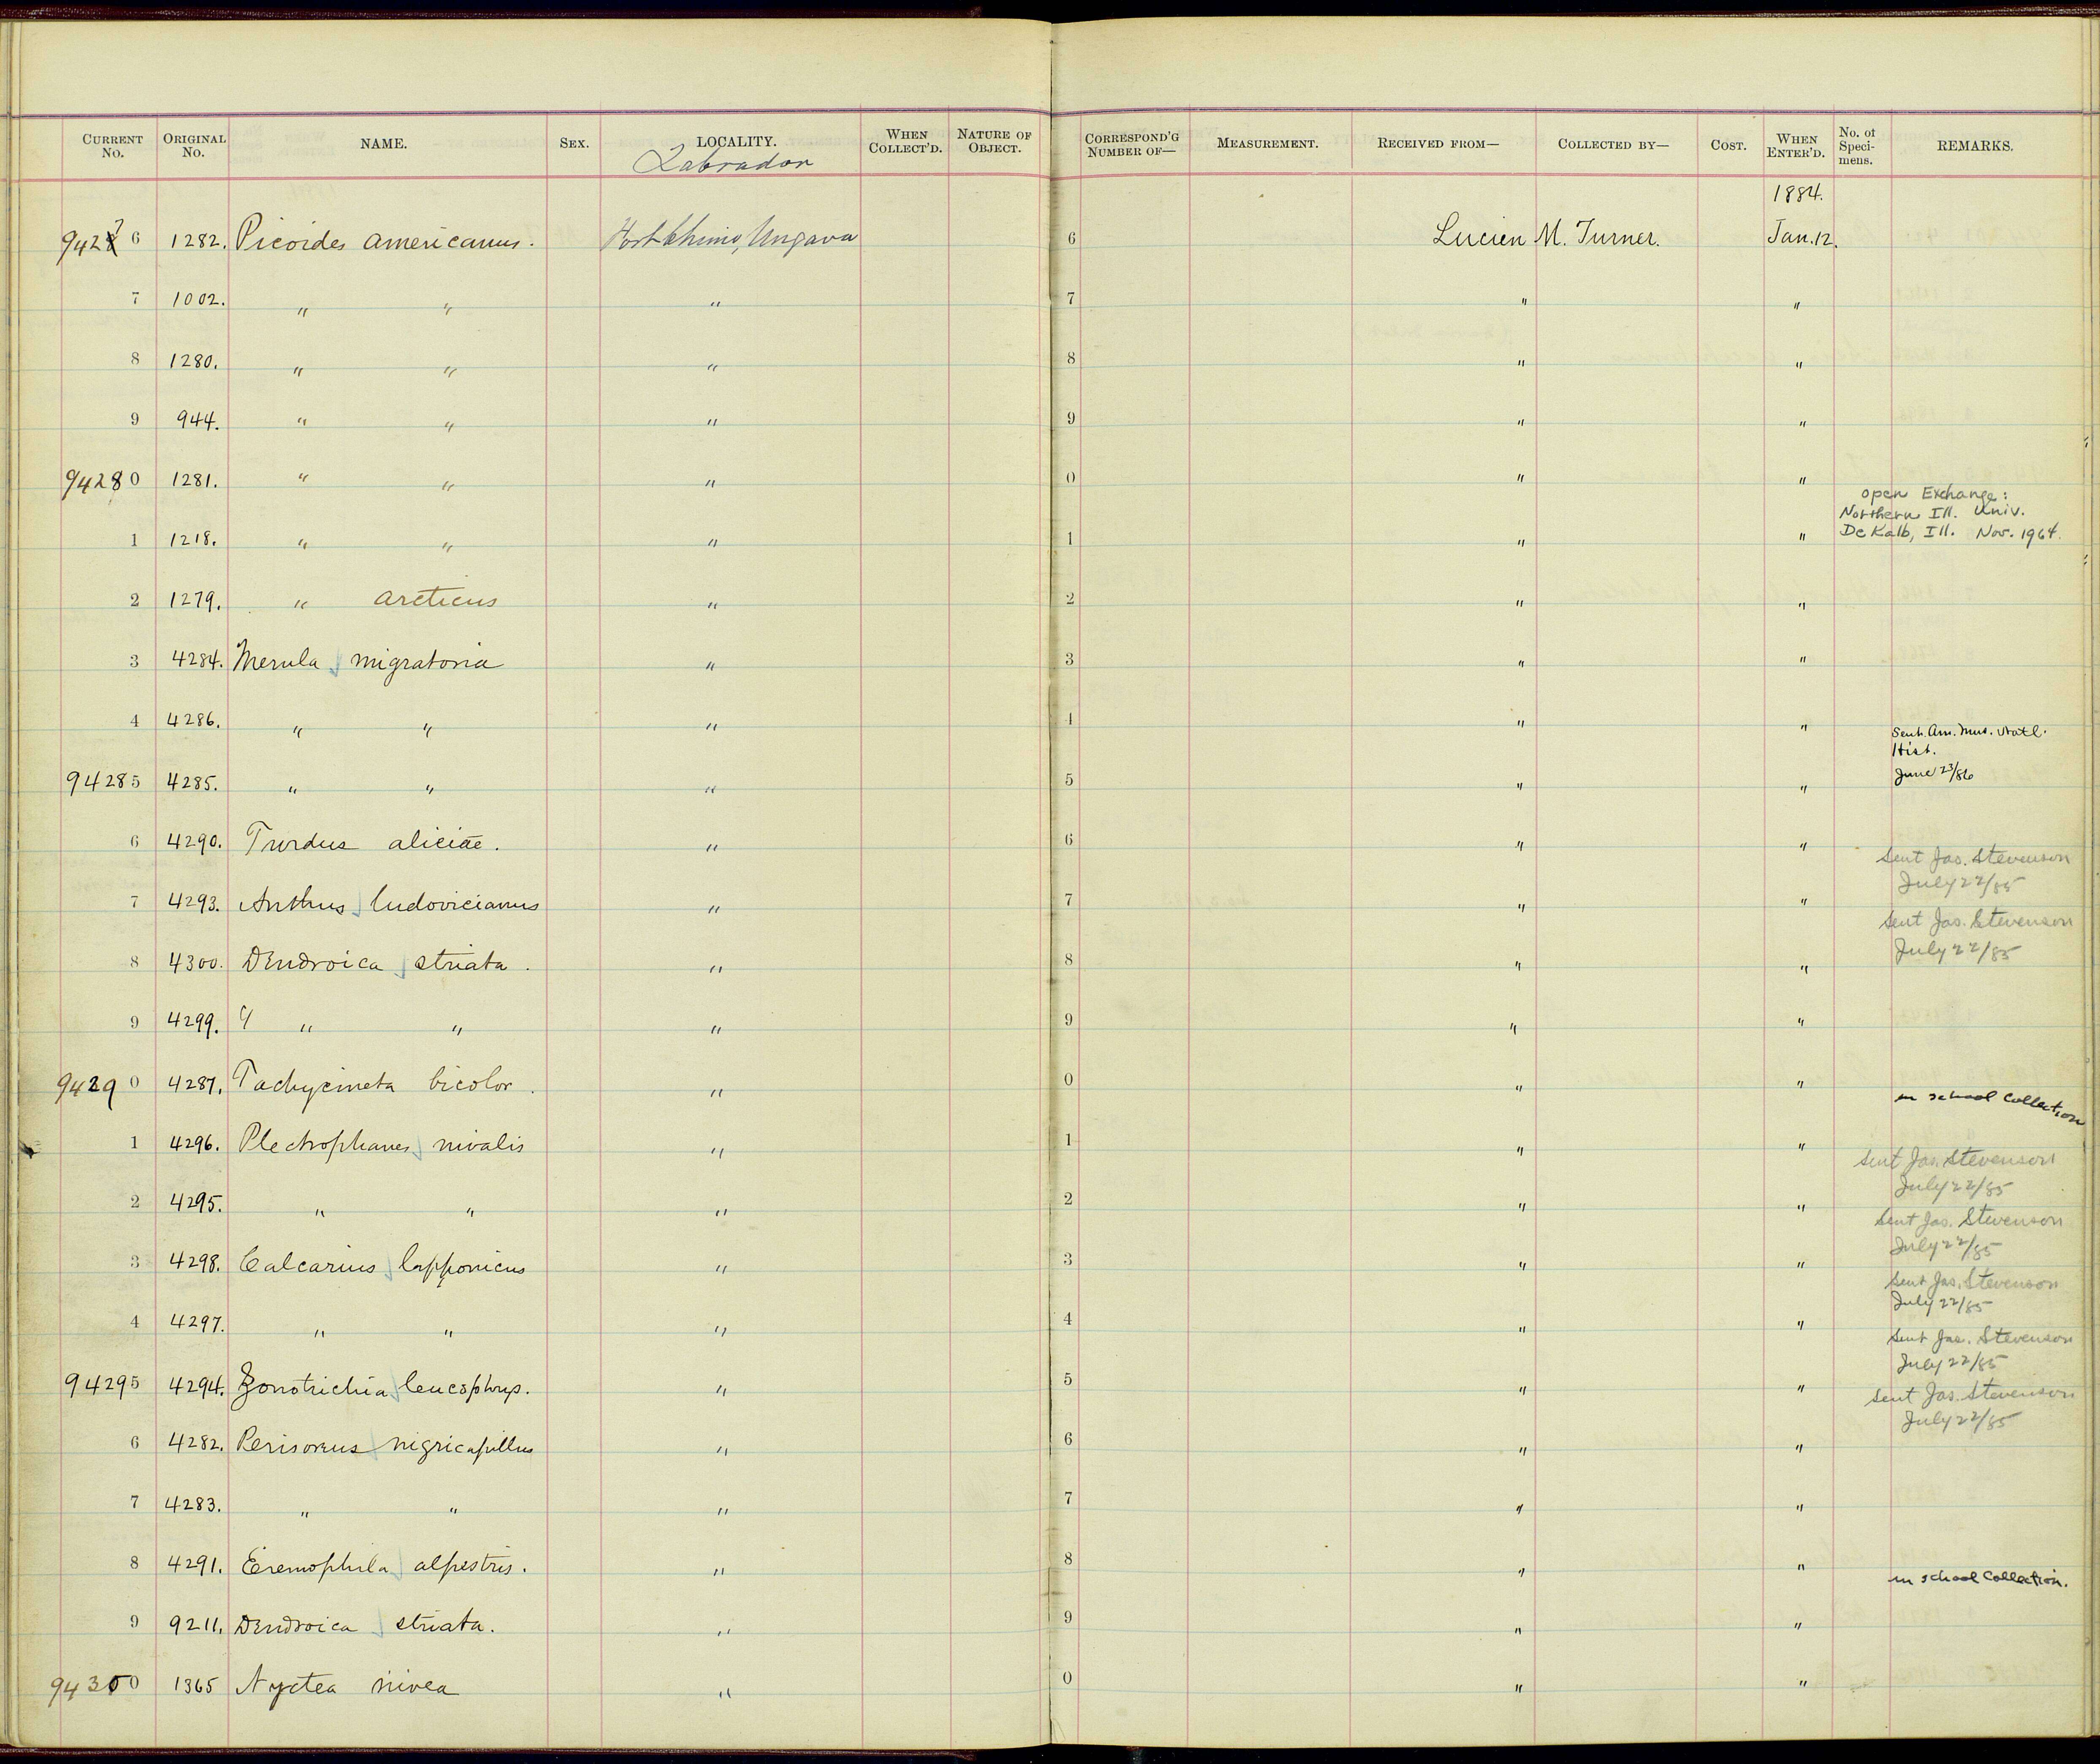 CURRENT No. ORIGINAL No. NAME. SEX. LOCALITY. WHEN COLLECT'D. NATURE OF OBJECT. CORRESPOND'G NUMBER OF— MEASUREMENT. RECEIVED FROM— COLLECTED BY— COST. WHEN ENTER'D. No. of Speci-mens. REMARKS.
Labrador
1884.
9427 6 1282. Picoides americanus. Fort Chimo, Ungava 6 Lucien M. Turner. Jan. 12.
7 1002. " " " 7 " "
8 1280. " " " 8 " "
9 944. " " " 9 " "
94280 1281. " " " 0 " "
open Exchange:
Northern Ill. Univ.
1 1218. " " " 1 " " De Kalb, Ill. Nov. 1964.
2 1279. " arcticus " 2 " "
3 4284. Merula migratoria " 3 " "
4 4286. " " " 4 " " Sent. Am. Mus. Natl.
Hist.
94285 4285. " " " 5 " " June 23/86
6 4290. Turdus aliciae. " 6 " " Sent Jas. Stevenson
July 22/85
7 4293. Anthus ludovicianus " 7 " " Sent Jas. Stevenson
July 22/85
8 4300. Dendroica striata. " 8 " "
9 4299. " " " " 9 " "
94290 4287. Tachycineta bicolor. " 0 " " in school collection
1 4296. Plectrophanes nivalis " 1 " " Sent Jas. Stevenson
July 22/85
2 4295. " " " 2 " " Sent Jas. Stevenson
July 22/85
3 4298. Calcarius lapponicus " 3 " " Sent Jas. Stevenson
July 22/85
4 4297. " " " 4 " " Sent Jas. Stevenson
July 22/85
94295 4294. Zonotrichia leucophrys. " 5 " " Sent Jas. Stevenson
July 22/85
6 4282. Perisoreus nigricapillus " 6 " "
7 4283. " " " 7 " "
8 4291. Eremophila alpestris. " 8 " " in school collection.
9 9211. Dendroica striata. " 9 " "
94300 1365 Nyctea nivea " 0 " "